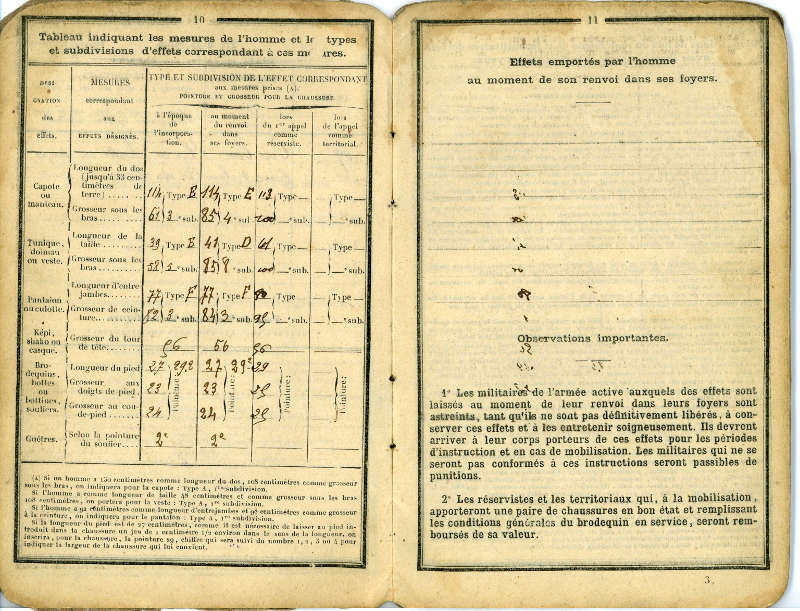 10
Tableau indiquant les mesures de l'homme et les types
et subdivisions d'effets correspondant à ces mesures.
DÉSI-
GNATION
des
effets.
MESURES
correspondant
aux
EFFETS DÉSIGNÉS.
TYPE ET SUBDIVISION DE L'EFFET CORRESPONDANT
aux mesures prises (A).
POINTURE ET GROSSEUR POUR LA CHAUSSURE
à l'époque
de
l'incorpora-
tion.
au moment
du renvoi
dans
ses foyers.
lors
du 1er appel
comme
réserviste.
lors
de l'appel
comme
territorial.
Capote
ou
manteau.
Longueur du dos
(jusqu'à 33 cen-
timètres de
terre)
114 Type B 114 Type E 113 Type — Type —
Grosseur sous les
bras
61 3e sub. 85 4e sub. 100 — e sub. — e sub.
Tunique,
dolman
ou veste.
Longueur de la
taille
39 Type E 41 Type D 61 Type — Type —
Grosseur sous les
bras
58 5e sub. 85 8e sub. 100 — e sub. — e sub.
Pantalon
ou culotte.
Longueur d'entre-
jambes
77 Type F 77 Type F 80 Type — Type —
Grosseur de cein-
ture
52 3e sub. 84 3e sub. 95 — e sub. — e sub.
Képi,
shako ou
casque.
Grosseur du tour
de tête
56 56 56
Brode-
quins,
bottes
ou
bottines,
souliers.
Longueur du pied
27 29.2 27 29 2 29
Grosseur aux
doigts de pied
23 23 25
Grosseur au cou-
de-pied
24 24 25
Pointure: Pointure: Pointure: Pointure:
Guêtres.
Selon la pointure
du soulier
2e 2e
(A) Si un homme a 150 centimètres comme longueur du dos, 108 centimètres comme grosseur
sous les bras, on indiquera pour la capote : Type A, 1re subdivision.
Si l'homme a comme longueur de taille 48 centimètres et comme grosseur sous les bras
108 centimètres, on portera pour la veste : Type A, 1re subdivision.
Si l'homme a 92 centimètres comme longueur d'entrejambes et 98 centimètres comme grosseur
à la ceinture, on indiquera pour le pantalon : Type A, 1re subdivision.
Si la longueur du pied est de 27 centimètres, comme il est nécessaire de laisser au pied in-
troduit dans la chaussure un jeu de 1 centimètre 1/2 environ dans le sens de la longueur, on
inscrira, pour la chaussure, la pointure 29, chiffre qui sera suivi du nombre 1, 2, 3 ou 4 pour
indiquer la largeur de la chaussure qui lui convient.
11
Effets emportés par l'homme
au moment de son renvoi dans ses foyers.
Observations importantes.
1° Les militaires de l'armée active auxquels des effets sont
laissés au moment de leur renvoi dans leurs foyers sont
astreints, tant qu'ils ne sont pas définitivement libérés, à con-
server ces effets et à les entretenir soigneusement. Ils devront
arriver à leur corps porteurs de ces effets pour les périodes
d'instruction et en cas de mobilisation. Les militaires qui ne se
seront pas conformés à ces instructions seront passibles de
punitions.
2° Les réservistes et les territoriaux qui, à la mobilisation,
apporteront une paire de chaussures en bon état et remplissant
les conditions générales du brodequin en service, seront rem-
boursés de sa valeur.
3